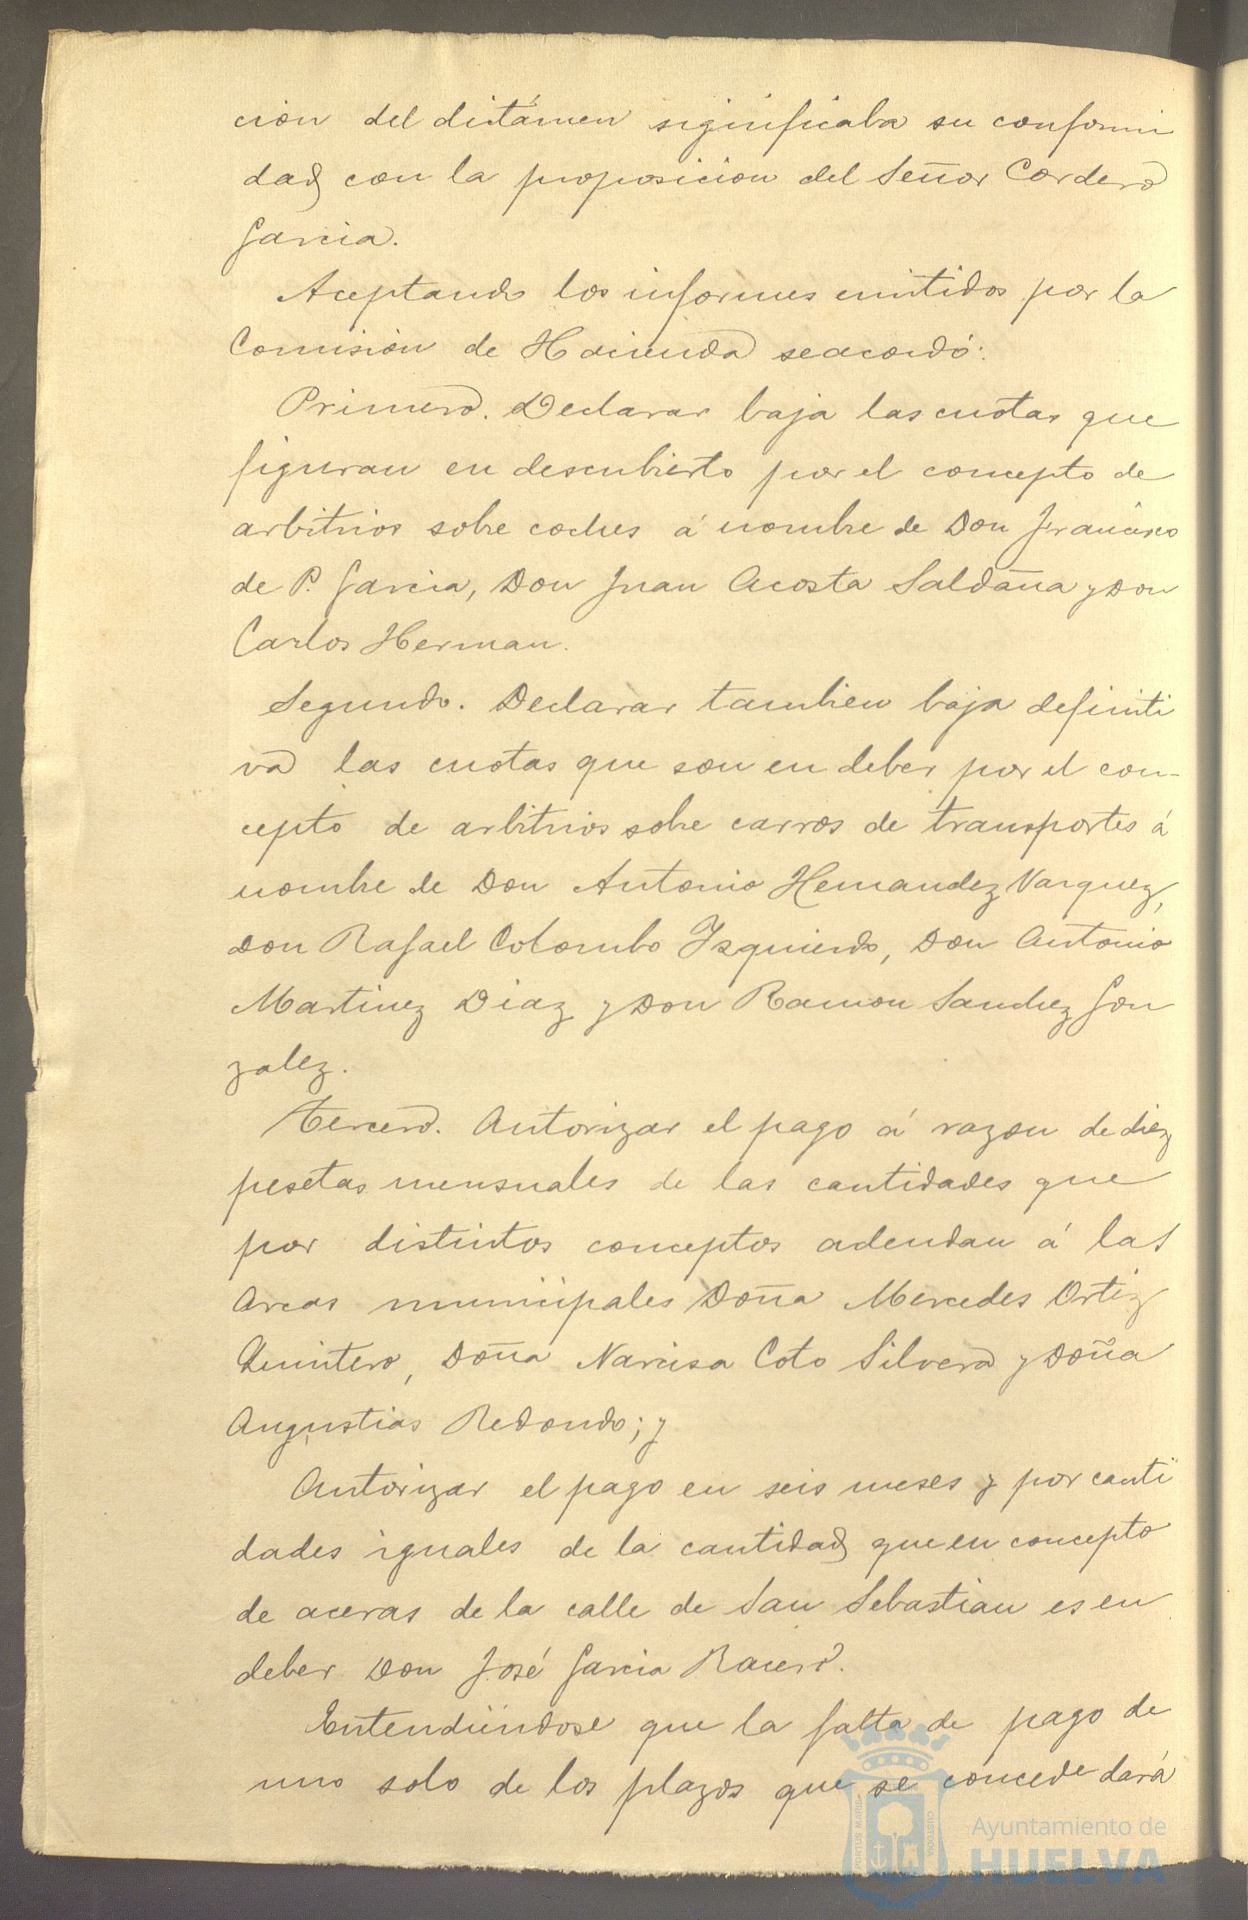 cion del dictámen significaba su conformi
dad con la proposicion del Señor Cordero
Garcia.
Aceptando los informes emitidos por la
Comisión de Hacienda se acordó:
Primero. Declarar baja las cuotas que
figuran en descubierto por el concepto de
arbitrios sobre coches á nombre de Don Francisco
de P. Garcia, Don Juan Acosta Saldaña y Don
Carlos Herman.
Segundo. Declarar tambien baja definiti
va las cuotas que son en deber por el con-
cepto de arbitrios sobre carros de transportes á
nombre de Don Antonio Hernandez Vazquez,
Don Rafael Colombo Izquierdo, Don Antonio
Martinez Diaz y Don Ramon Sanchez Gon
zalez.
Tercero. Autorizar el pago á razon de diez
pesetas mensuales de las cantidades que
por distintos conceptos adeudan á las
Arcas municipales Doña Mercedes Ortiz
Quintero, Doña Narcisa Coto Silvera y Doña
Angustias Redondo; y
Autorizar el pago en seis meses y por canti
dades iguales de la cantidad que en concepto
de aceras de la calle de San Sebastian es en
deber Don José Garcia Racero.
Entendiéndose que la falta de pago de
uno solo de los plazos que se concede dará
PORTUS MARIS
CUSTODIA
Ayuntamiento de
HUELVA